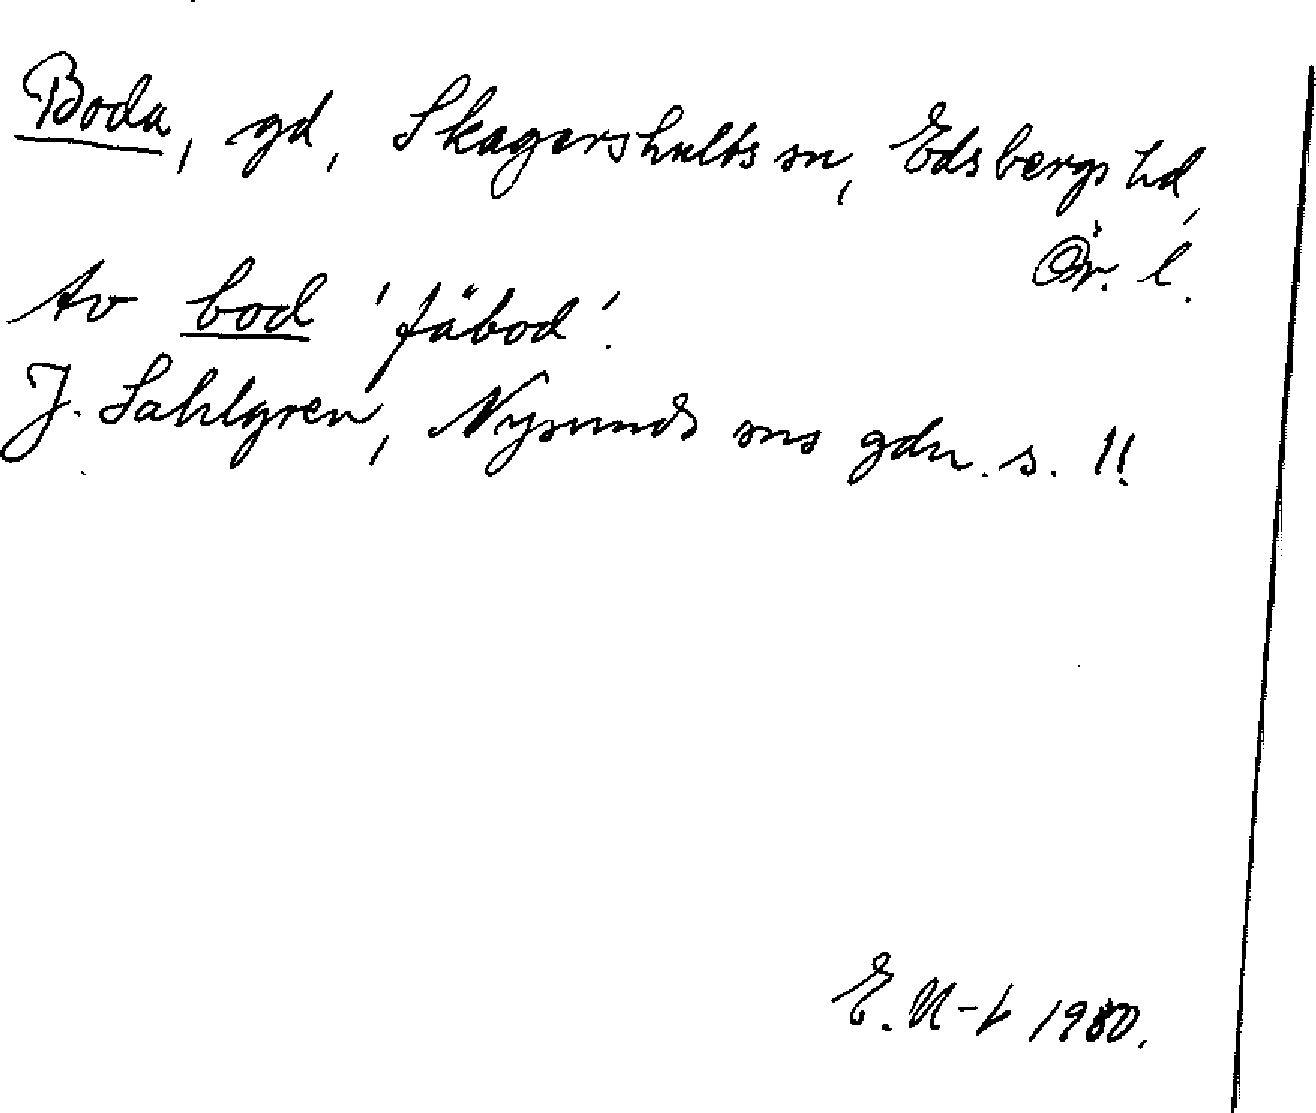 Boda, gd, Skagershults sn, Edsbergs hd,
Ör. l.
Av bod 'fäbod'.
J. Sahlgren, Nysunds sns gdn. s. 11.
E. N-t 1980.